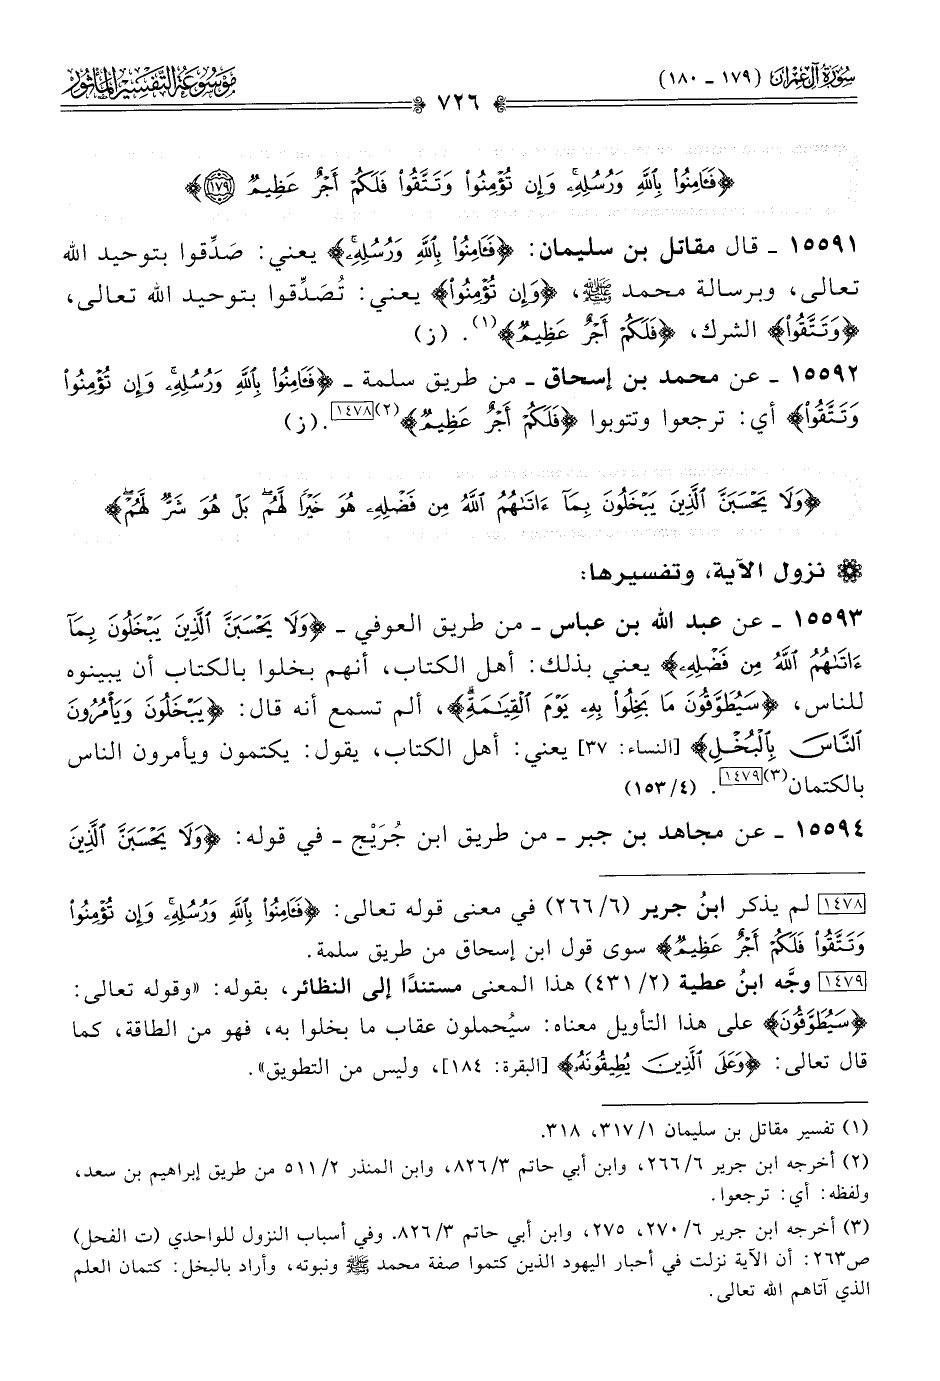 سُورَةُ آلِ عِمْرَانَ (١٧٩ - ١٨٠)
مَوْسُوعَةُ التَّفْسِيرِ المَأْثُورِ
٧٢٦
﴿فَـَٔامِنُوا۟ بِٱللَّهِ وَرُسُلِهِۦۚ وَإِن تُؤْمِنُوا۟ وَتَتَّقُوا۟ فَلَكُمْ أَجْرٌ عَظِيمٌ ١٧٩﴾
١٥٥٩١ - قال مقاتل بن سليمان: ﴿فَـَٔامِنُوا۟ بِٱللَّهِ وَرُسُلِهِۦۚ﴾ يعني: صَدِّقوا بتوحيد الله
تعالى، وبرسالة محمد ﷺ، ﴿وَإِن تُؤْمِنُوا۟﴾ يعني: تُصَدِّقوا بتوحيد الله تعالى،
﴿وَتَتَّقُوا۟﴾ الشرك، ﴿فَلَكُمْ أَجْرٌ عَظِيمٌ﴾(١). (ز)
١٥٥٩٢ - عن محمد بن إسحاق - من طريق سلمة - ﴿فَـَٔامِنُوا۟ بِٱللَّهِ وَرُسُلِهِۦۚ وَإِن تُؤْمِنُوا۟
وَتَتَّقُوا۟﴾ أي: ترجعوا وتتوبوا ﴿فَلَكُمْ أَجْرٌ عَظِيمٌ﴾(٢)١٤٧٨. (ز)
﴿وَلَا يَحْسَبَنَّ ٱلَّذِينَ يَبْخَلُونَ بِمَآ ءَاتَىٰهُمُ ٱللَّهُ مِن فَضْلِهِۦ هُوَ خَيْرًا لَّهُمۖ بَلْ هُوَ شَرٌّ لَّهُمْۖ﴾
نزول الآية، وتفسيرها:
١٥٥٩٣ - عن عبد الله بن عباس - من طريق العوفي - ﴿وَلَا يَحْسَبَنَّ ٱلَّذِينَ يَبْخَلُونَ بِمَآ
ءَاتَىٰهُمُ ٱللَّهُ مِن فَضْلِهِۦ﴾ يعني بذلك: أهل الكتاب، أنهم بخلوا بالكتاب أن يبينوه
للناس، ﴿سَيُطَوَّقُونَ مَا بَخِلُوا۟ بِهِۦ يَوْمَ ٱلْقِيَـٰمَةِۗ﴾، ألم تسمع أنه قال: ﴿يَبْخَلُونَ وَيَأْمُرُونَ
ٱلنَّاسَ بِٱلْبُخْلِ﴾ [النساء: ٣٧] يعني: أهل الكتاب، يقول: يكتمون ويأمرون الناس
بالكتمان(٣)١٤٧٩. (٤/١٥٣)
١٥٥٩٤ - عن مجاهد بن جبر - من طريق ابن جُرَيْج - في قوله: ﴿وَلَا يَحْسَبَنَّ ٱلَّذِينَ
١٤٧٨ لم يذكر ابنُ جرير (٦/٢٦٦) في معنى قوله تعالى: ﴿فَـَٔامِنُوا۟ بِٱللَّهِ وَرُسُلِهِۦۚ وَإِن تُؤْمِنُوا۟
وَتَتَّقُوا۟ فَلَكُمْ أَجْرٌ عَظِيمٌ﴾ سوى قول ابن إسحاق من طريق سلمة.
١٤٧٩ وجَّه ابنُ عطية (٢/٤٣١) هذا المعنى مستندًا إلى النظائر، بقوله: «وقوله تعالى:
﴿سَيُطَوَّقُونَ﴾ على هذا التأويل معناه: سيُحملون عقاب ما بخلوا به، فهو من الطاقة، كما
قال تعالى: ﴿وَعَلَى ٱلَّذِينَ يُطِيقُونَهُۥ﴾ [البقرة: ١٨٤]، وليس من التطويق».
(١) تفسير مقاتل بن سليمان ١/٣١٧، ٣١٨.
(٢) أخرجه ابن جرير ٦/٢٦٦، وابن أبي حاتم ٣/٨٢٦، وابن المنذر ٢/٥١١ من طريق إبراهيم بن سعد،
ولفظه: أي: ترجعوا.
(٣) أخرجه ابن جرير ٦/٢٧٠، ٢٧٥، وابن أبي حاتم ٣/٨٢٦. وفي أسباب النزول للواحدي (ت الفحل)
ص٢٦٣: أن الآية نزلت في أحبار اليهود الذين كتموا صفة محمد ﷺ ونبوته، وأراد بالبخل: كتمان العلم
الذي آتاهم الله تعالى.